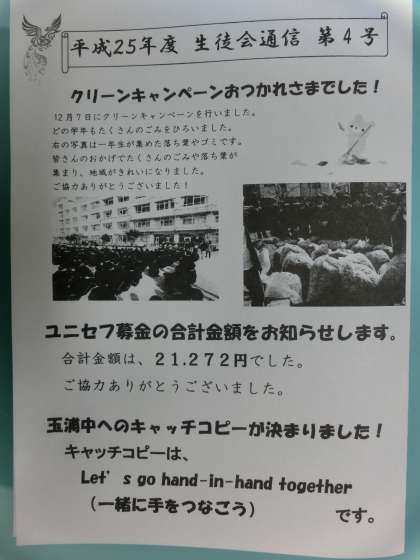 平成25年度 生徒会通信 第4号
クリーンキャンペーンおつかれさまでした！
12月7日にクリーンキャンペーンを行いました。
どの学年もたくさんのごみをひろいました。
右の写真は一年生が集めた落ち葉やゴミです。
皆さんのおかげでたくさんのごみや落ち葉が
集まり、地域がきれいになりました。
ご協力ありがとうございました！
ユニセフ募金の合計金額をお知らせします。
合計金額は、21.272円でした。
ご協力ありがとうございました。
玉浦中へのキャッチコピーが決まりました！
キャッチコピーは、
Let's go hand-in-hand together
（一緒に手をつなごう） です。